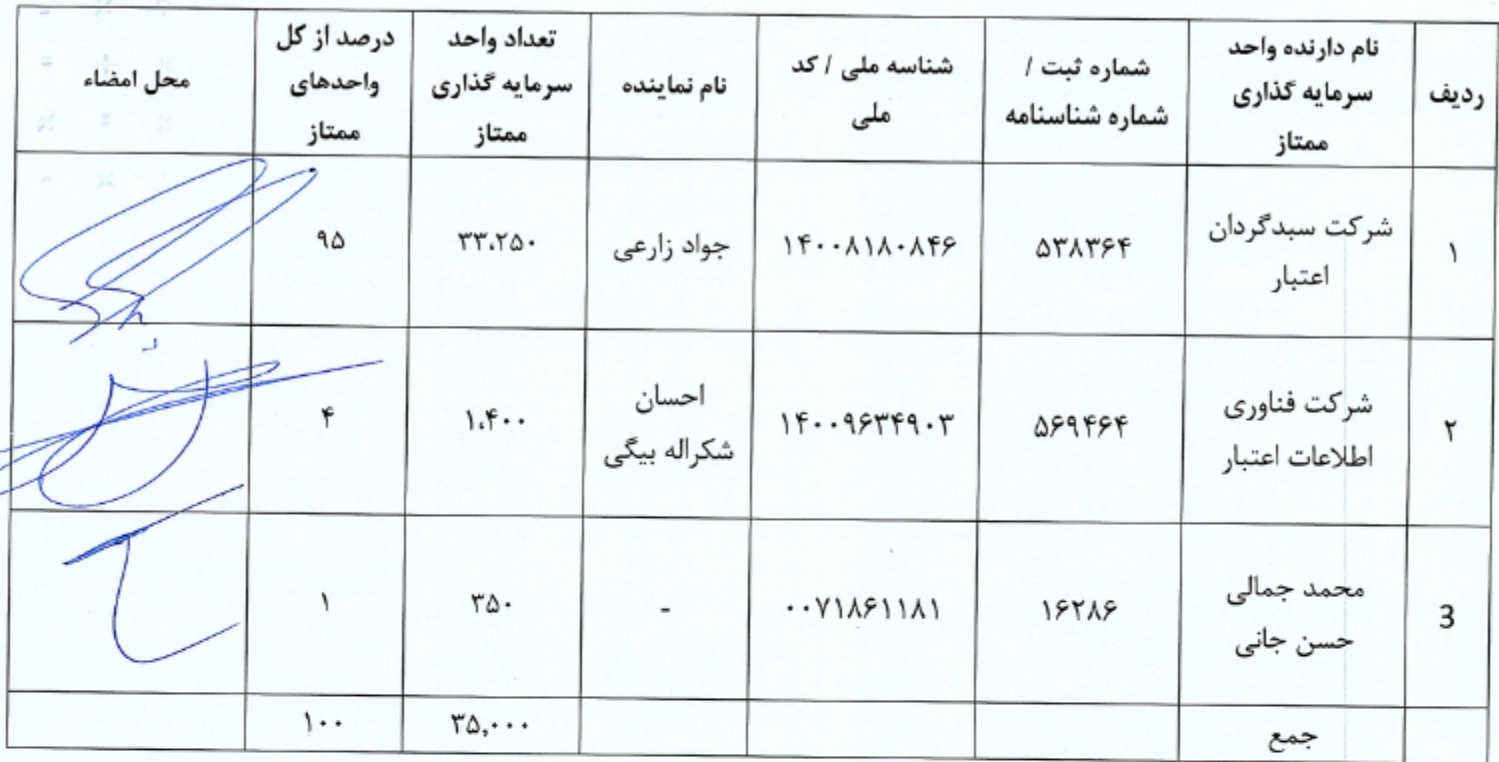 ردیف
نام دارنده واحد
سرمایه گذاری
ممتاز
شماره ثبت /
شماره شناسنامه
شناسه ملی / کد
ملی
نام نماینده
تعداد واحد
سرمایه گذاری
ممتاز
درصد از کل
واحدهای
ممتاز
محل امضاء
۱
شرکت سبدگردان
اعتبار
۵۳۸۳۶۴
۱۴۰۰۸۱۸۰۸۴۶
جواد زارعی
۳۳،۲۵۰
۹۵
۲
شرکت فناوری
اطلاعات اعتبار
۵۶۹۴۶۴
۱۴۰۰۹۶۳۴۹۰۳
احسان
شکراله بیگی
۱،۴۰۰
۴
3
محمد جمالی
حسن جانی
۱۶۲۸۶
۰۰۷۱۸۶۱۱۸۱
-
۳۵۰
۱
جمع
۳۵,۰۰۰
۱۰۰